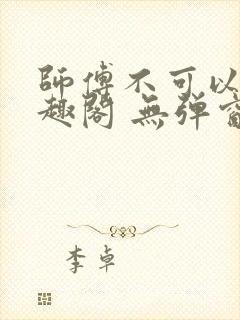 師傅不可以
趣閣 無彈
李卓